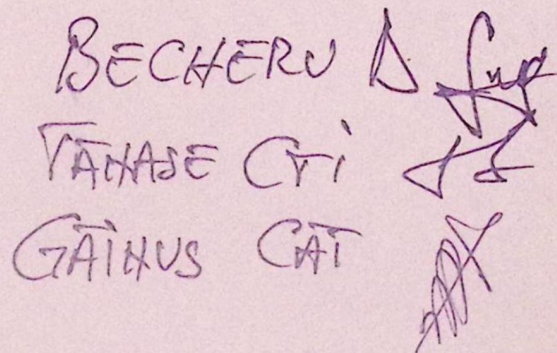 BECHERU D
TĂNASE CTI
GĂINUS CĂT